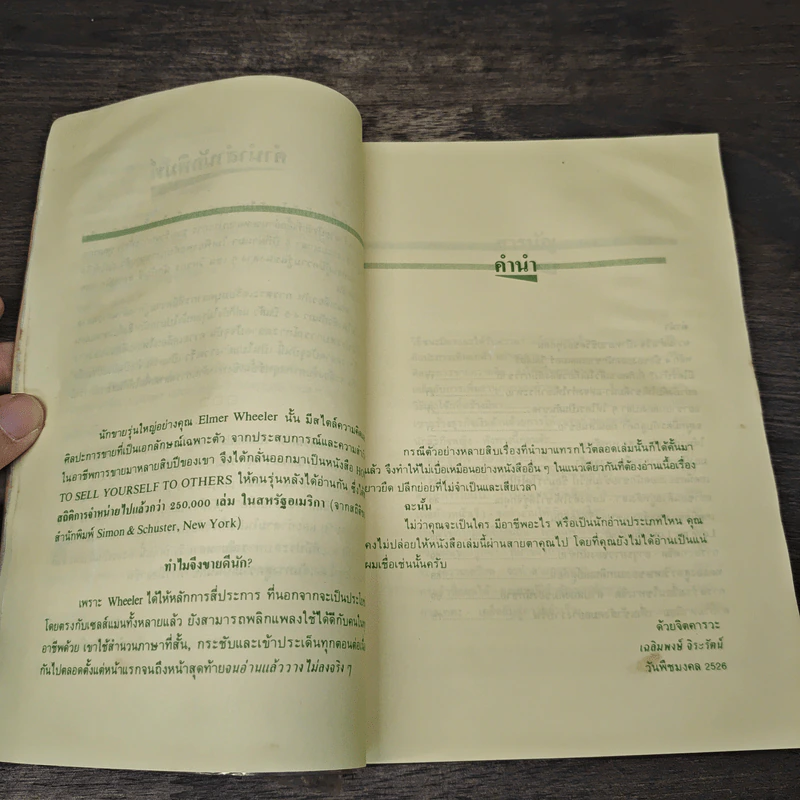 นักขายรุ่นใหญ่อย่างคุณ Elmer Wheeler นั้น มีสไตล์ความคิด
ศิลปะการขายที่เป็นเอกลักษณ์เฉพาะตัว จากประสบการณ์และความ
ในอาชีพการขายมาหลายสิบปีของเขา จึงได้กลั่นออกมาเป็นหนังสือ
TO SELL YOURSELF TO OTHERS ให้คนรุ่นหลังได้อ่านกัน
สถิติการจำหน่ายไปแล้วกว่า 250,000 เล่ม ในสหรัฐอเมริกา (จาก
สำนักพิมพ์ Simon & Schuster, New York)
ทำไมจึงขายดีนัก?
เพราะ Wheeler ได้ให้หลักการสี่ประการ ที่นอกจากจะเป็น
โดยตรงกับเซลส์แมนทั้งหลายแล้ว ยังสามารถพลิกแพลงใช้ได้ดีกับคน
อาชีพด้วย เขาใช้สำนวนภาษาที่สั้น, กระชับและเข้าประเด็นทุกตอน
กันไปตลอดตั้งแต่หน้าแรกจนถึงหน้าสุดท้ายจนอ่านแล้ววางไม่ลงจริง ๆ
คำนำ
กรณีตัวอย่างหลายสิบเรื่องที่นำมาแทรกไว้ตลอดเล่มนั้นก็ได้คั้นมา
แล้ว จึงทำให้ไม่เบื่อเหมือนอย่างหนังสืออื่น ๆ ในแนวเดียวกันที่ต้องอ่านเนื้อเรื่อง
ยาวยืด ปลีกย่อยที่ไม่จำเป็นและเสียเวลา
ฉะนั้น
ไม่ว่าคุณจะเป็นใคร มีอาชีพอะไร หรือเป็นนักอ่านประเภทไหน คุณ
คงไม่ปล่อยให้หนังสือเล่มนี้ผ่านสายตาคุณไป โดยที่คุณยังไม่ได้อ่านเป็นแน่
ผมเชื่อเช่นนั้นครับ
ด้วยจิตคารวะ
เฉลิมพงษ์ จิระรัตน์
วันพืชมงคล 2526